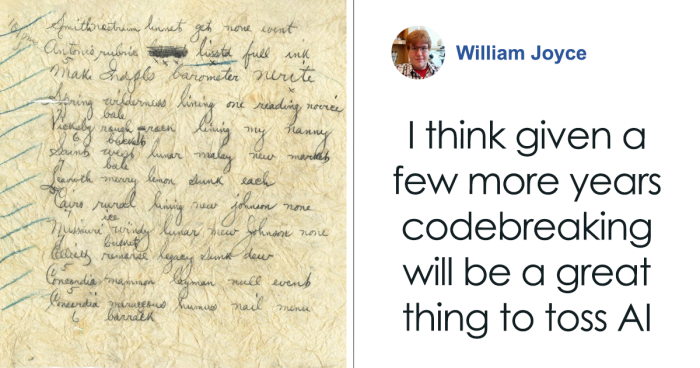 Smith nostrum linnet get none event
Antonio rubric lissdt full ink
Make Indpls barometer nerite
Spring wilderness lining one reading novice
bale
Vicksbg rough rack lining my nanny
6 bucket
Saints west lunar malay new markub
7 bale
Leawth merry lemon sunk each
Cairo rural lining new johnson none
7 ice
Missouri windy lunar new johnson none
bucket
memorise legacy sunk dew
5
Concordia mammon layman null events
5
Concordia meraccous humus nail menu
6 barrack
William Joyce
I think given a
few more years
codebreaking
will be a great
thing to toss AI